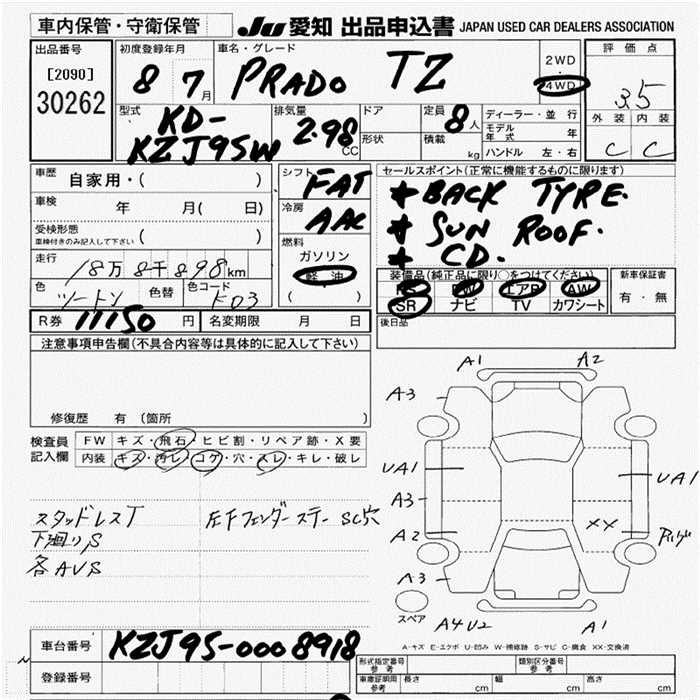 車内保管・守衛保管
JU 愛知 出品申込書 JAPAN USED CAR DEALERS ASSOCIATION
出品番号
[2090]
30262
初度登録年月
8 7月
車名・グレード
PRADO TZ
2WD
4WD
評価点
3.5
外装 内装
C C
型式
KD-
KZJ95W
排気量
2.98
CC
ドア
形状
定員
8人
積載
kg
ディーラー・並行
モデル年式 年
ハンドル 左・右
車歴
自家用・( )
車検
年 月( 日)
受検形態
車検付きのみ記入して下さい ( )
走行
18万8千898km
色
ツートン
色替
色コード
KD3
シフト
FAT
冷房
AAC
燃料
ガソリン
軽油
( )
セールスポイント(正常に機能するものに限ります)
★ BACK TYPE.
★ SUN ROOF.
★ CD.
装備品(純正品に限り○をつけてください)
PS PW エアB AW
SR ナビ TV カワシート
新車保証書
有・無
後日品
R券 11150 円
名変期限 月 日
注意事項申告欄(不具合内容等は具体的に記入して下さい)
修復歴 有(箇所 )
検査員
記入欄
FW キズ・飛石・ヒビ割・リペア跡・X要
内装 キズ・汚レ・コゲ・穴・スレ・キレ・破レ
スタッドレスT
下廻りS
各AUS
左Fフェンダーステー SC穴
A1 A2
A3
UA1 UA1
A3
A2 XX
A3
スペア
A4U2 A1
A-キズ E-エクボ U-凹み W-補修跡 S-サビ C-腐食 XX-交換済
車台番号
KZJ95-0008918
登録番号
形式指定番号
参考
類別区分番号
参考
車庫証明用
参考
長さ cm 幅 cm 高さ cm